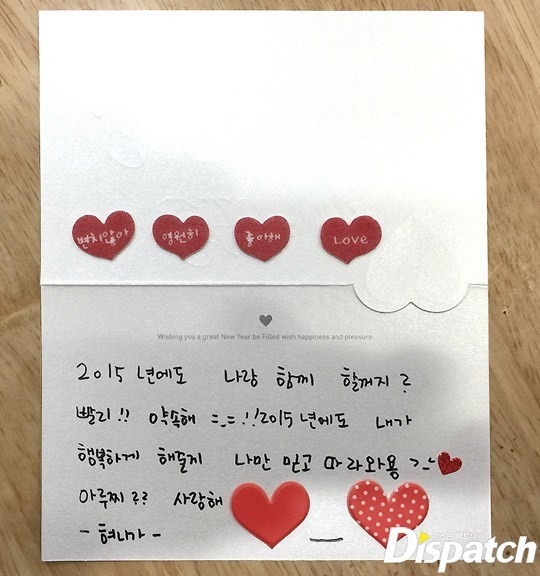 변치않아 영원히 좋아해 Love
Wishing you a great New Year be Filled wish happiness and pleasure.
2015 년에도 나랑 함께 할꺼지?
빨리!! 약속해 =_= !!2015 년에도 내가
행복하게 해줄게 나만 믿고 따라와용 >_-
아루찌?? 사랑해
- 혀니가 -
Dispatch